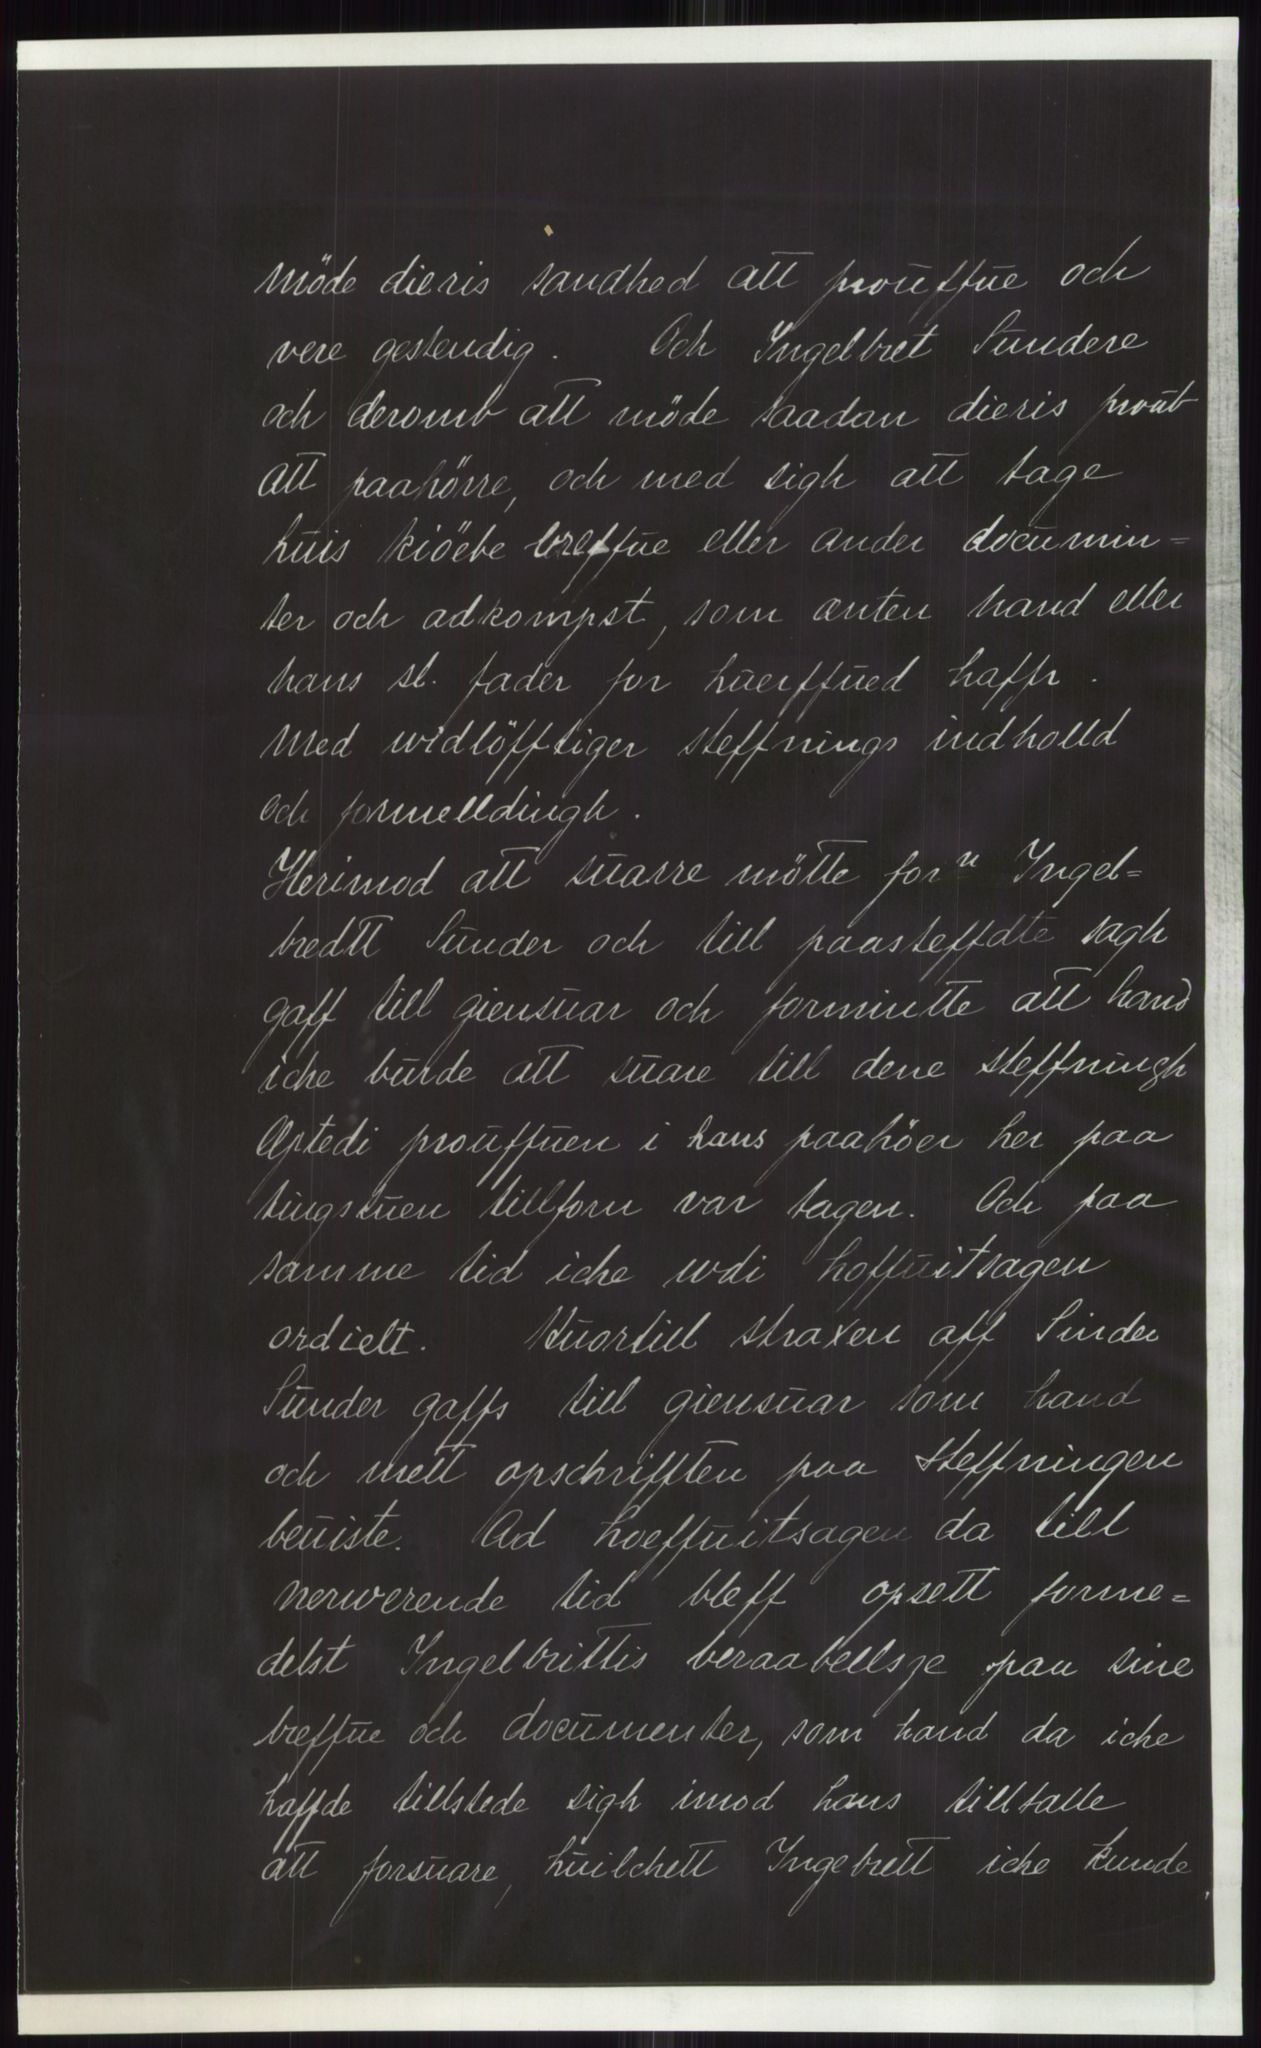 möde dieris sandhed att prouffue och
vere gestendig. Och Ingelbret Sundere
och deromb att möde saadan dieris proub
att paahörre, och med sigh att tage
huis kiöebe breffue eller ander documin=
ter och adkompst, som anten hand eller
hans sl. fader for huerffued haffr.
Med widlöfftiger steffnings indholld
och formelldingh.
Herimod att suarre mötte forn Ingel=
bredtt Sunder och till paasteffdte sagh
gaff till giensuar och formintte att hand
iche burde att suare till dene steffningh
Eptedi prouffuen i hans paahöer her paa
tingstuen tillforn var tagen. Och paa
samme tid iche wdi hoffuitsagen
ordielt. Huortill straxen aff Sinder
Sunder gaffs till giensuar som hand
och mett opschrifften paa Steffningen
beuiste. Ad hoeffuitsagen da till
nerwerende tid bleff opsett forme=
delst Ingelbrittis beraabellsze paa sine
breffue och documenter, som hand da iche
haffde tillstede sigh imod hans tilltalle
att forsuare, huilchett Ingebrett iche kunde